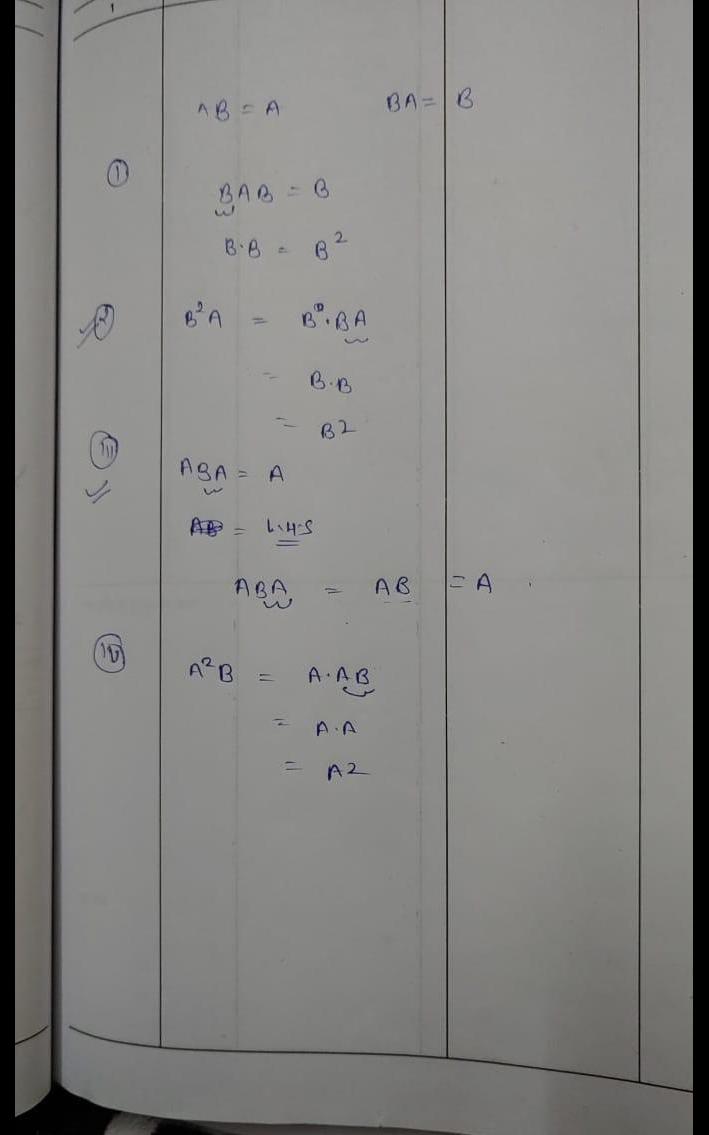 AB = A BA = B
① BAB = B
B·B = B²
② B²A = B·BA
= B·B
= B2
(iii) ABA = A
= L.H.S
ABA = AB = A
(iv) A²B = A·AB
= A·A
= A2